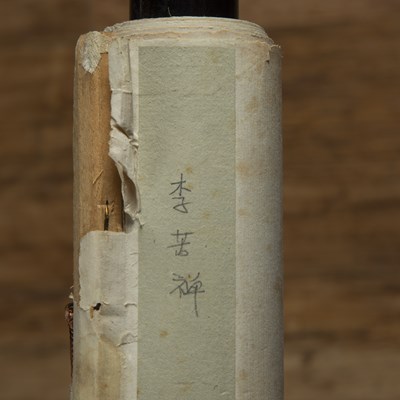 李苦禅